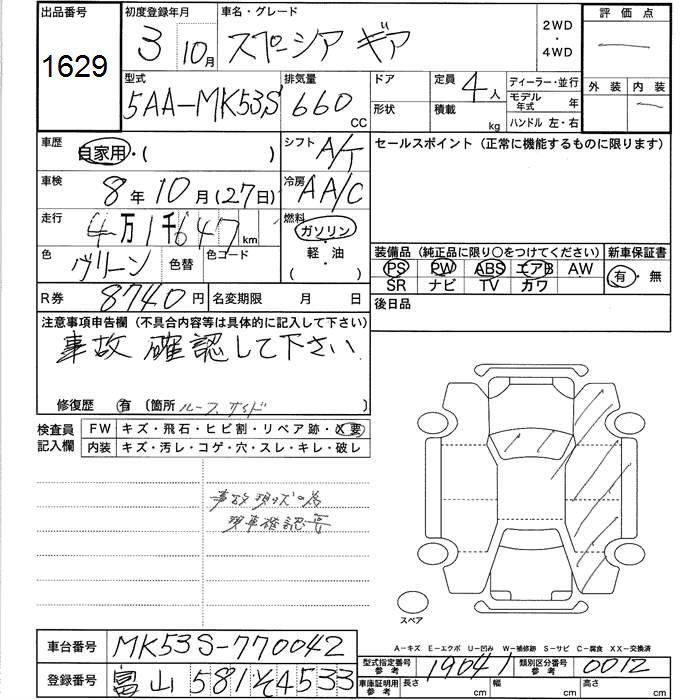 出品番号 1629
初度登録年月 3 10月
車名・グレード スペーシア ギア
2WD ・ 4WD
評価点
外装 内装
型式 5AA-MK53S
排気量 660 CC
ドア
形状
定員 4人
積載 kg
ディーラー・並行
モデル年式 年
ハンドル 左・右
車歴 自家用・( )
シフト A/T
セールスポイント (正常に機能するものに限ります)
車検 8年10月(27日)
冷房 AA/C
走行 4万1千647km
燃料 ガソリン・軽・油・( )
色 グリーン 色替 色コード
装備品 (純正品に限り○をつけてください) 新車保証書
PS PW ABS エアB AW 有・無
SR ナビ TV カワ
R券 8740円 名変期限 月 日
後日品
注意事項申告欄 (不具合内容等は具体的に記入して下さい)
事故 確認して下さい
修復歴 有 〔箇所 ルーフ サイド 〕
検査員記入欄
FW キズ・飛石・ヒビ割・リペア跡・X要
内装 キズ・汚レ・コゲ・穴・スレ・キレ・破レ
事故 現 の為
現車確認要
スペア
A-キズ E-エクボ U-凹み W-補修跡 S-サビ C-腐食 XX-交換済
車台番号 MK53S-770042
型式指定番号 参考 19041 類別区分番号 参考 0012
登録番号 富山 581 そ 4533
車庫証明用 参考 長さ cm 幅 cm 高さ cm